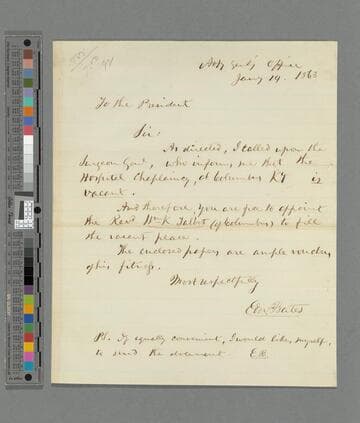 Atty Genl's Office
Jany 19. 1863
To the President
Sir:
As directed, I called upon the
Surgeon Genl, who informs me that the
Hospital Chaplaincy, at Columbus Ky is
vacant.
And therefore, you are free to appoint
the Revd Wm K Talbot (of Columbus) to fill
the vacant place.
The enclosed papers are ample vouchers
of his fitness.
Most respectfully
Edw Bates
PS. If equally convenient, I would like, myself,
to send the document E.B.